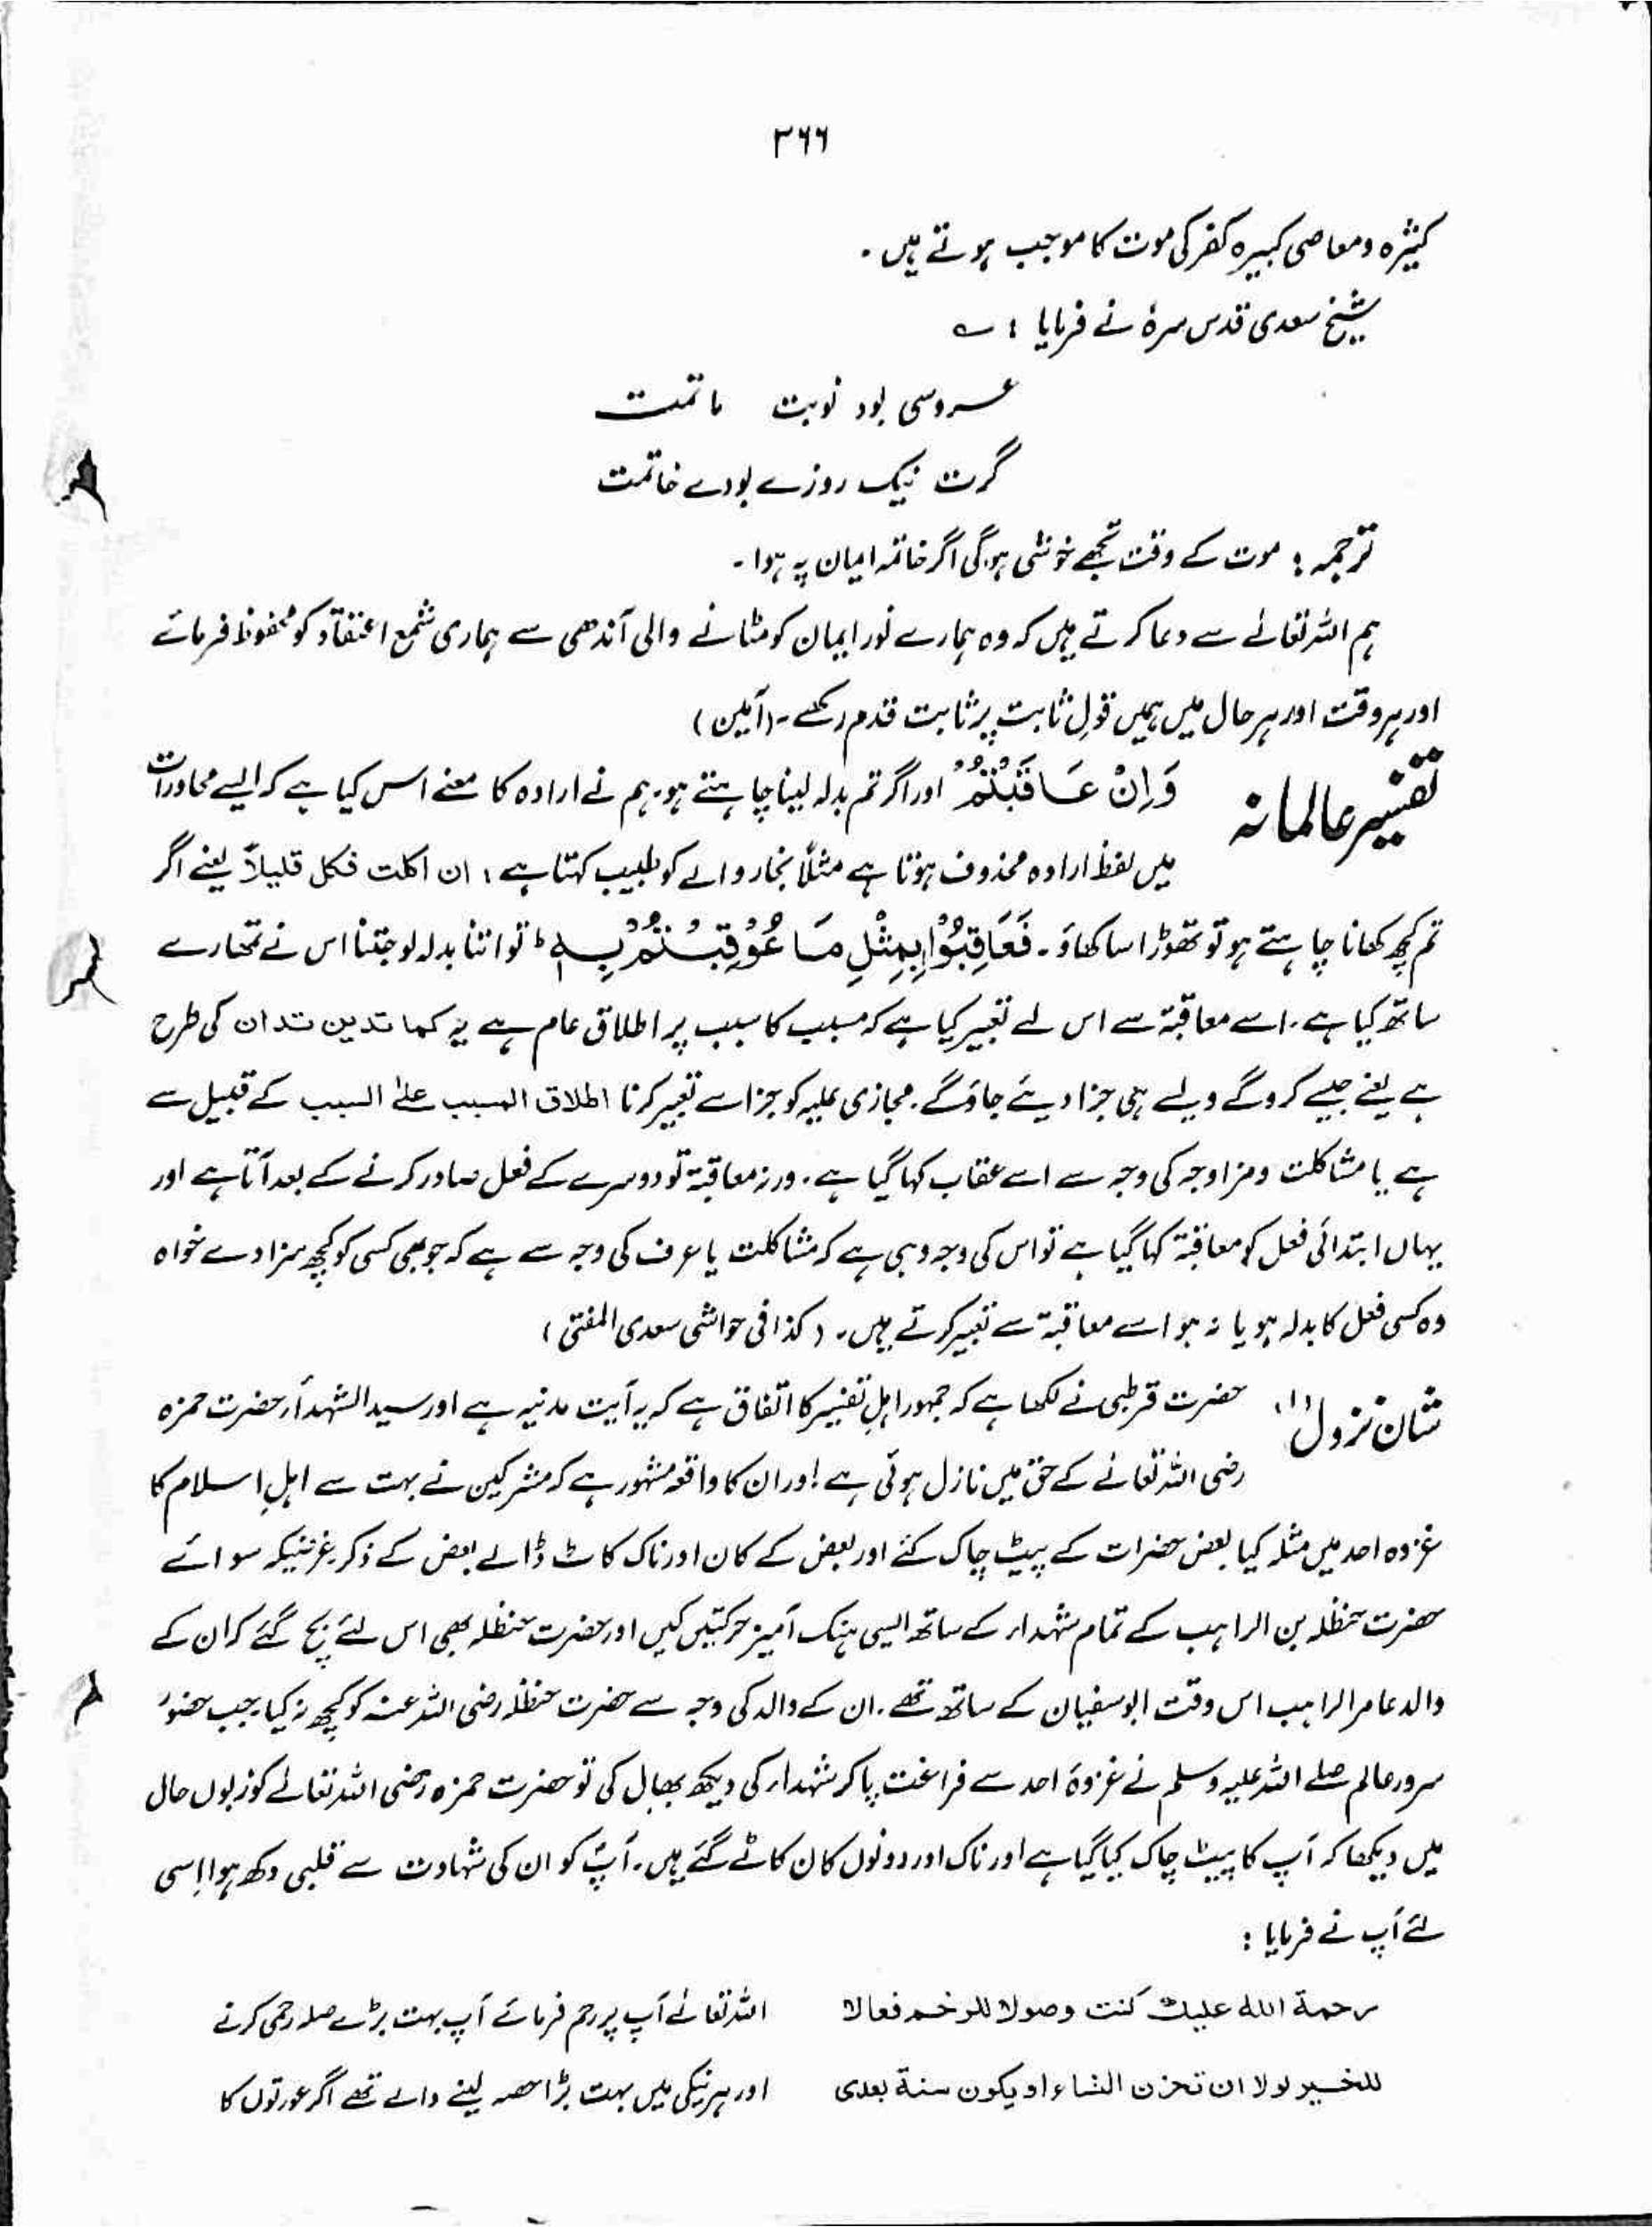 ۳۶۶
کثیرہ ومعاصی کبیرہ کفر کی موت کا موجب ہوتے ہیں ۔
شیخ سعدی قدس سرہٗ نے فرمایا : ؎
عروسی بود نوبت ماتمت
گرت نیک روزے بودے خاتمت
ترجمہ : موت کے وقت تجھے خوشی ہوگی اگر خاتمہ ایمان پہ ہوا ۔
ہم اللہ تعالےٰ سے دعا کرتے ہیں کہ وہ ہمارے نور ایمان کو مٹانے والی آندھی سے ہماری شمع اعتقاد کو محفوظ فرمائے
اور ہر وقت اور ہر حال میں ہمیں قولِ ثابت پر ثابت قدم رکھے ۔ (آمین)
تفسیر عالمانہ وَاِنْ عَاقَبْتُمْ اور اگر تم بدلہ لینا چاہتے ہو، ہم نے ارادہ کا معنے اس کیا ہے کہ ایسے محاورات
میں لفظ ارادہ محذوف ہوتا ہے مثلاً بخار والے کو طبیب کہتا ہے : ان اکلت فکل قلیلاً یعنے اگر
تم کچھ کھانا چاہتے ہو تو تھوڑا سا کھاؤ ۔ فَعَاقِبُوْا بِمِثْلِ مَا عُوْقِبْتُمْ بِہٖ ط تو اتنا بدلہ لو جتنا اس نے تمھارے
ساتھ کیا ہے ۔ اسے معاقبۃ سے اس لے تعبیر کیا ہے کہ مسبب کا سبب پر اطلاق عام ہے یہ کما تدین تدان کی طرح
ہے یعنے جیسے کروگے ویسے ہی جزا دیئے جاؤگے ۔ مجازی علیہ کو جزا سے تعبیر کرنا اطلاق المسبب علیٰ السبب کے قبیل سے
ہے یا مشاکلت ومزاوجہ کی وجہ سے اسے عقاب کہا گیا ہے ۔ ورنہ معاقبۃ تو دوسرے کے فعل صادر کرنے کے بعد آتا ہے اور
یہاں ابتدائی فعل کو معاقبۃ کہا گیا ہے تو اس کی وجہ وہی ہے کہ مشاکلت یا عرف کی وجہ سے ہے کہ جو بھی کسی کو کچھ سزا دے خواہ
وہ کسی فعل کا بدلہ ہو یا نہ ہو اسے معاقبۃ سے تعبیر کرتے ہیں ۔ (کذا فی حواشی سعدی المفتی)
شان نزول (۱) حضرت قرطبی نے لکھا ہے کہ جمہور اہلِ تفسیر کا اتفاق ہے کہ یہ آیت مدنیہ ہے اور سید الشہدأ، حضرت حمزہ
رضی اللہ تعالےٰ کے حق میں نازل ہوئی ہے ! اور ان کا واقعہ مشہور ہے کہ مشرکین نے بہت سے اہلِ اسلام کا
غزوہ احد میں مثلہ کیا بعض حضرات کے پیٹ چاک کئے اور بعض کے کان اور ناک کاٹ ڈالے بعض کے ذکر، غرضیکہ سوائے
حضرت حنظلہ بن الراہب کے تمام شہداء کے ساتھ ایسی ہتک آمیز حرکتیں کیں اور حضرت حنظلہ بھی اس لئے بچ گئے کہ ان کے
والد عامر الراہب اس وقت ابوسفیان کے ساتھ تھے ۔ ان کے والد کی وجہ سے حضرت حنظلہ رضی اللہ عنہ کو کچھ نہ کیا ۔ جب حضور
سرور عالم صلے اللہ علیہ وسلم نے غزوۂ احد سے فراغت پاکر شہداء کی دیکھ بھال کی تو حضرت حمزہ رضی اللہ تعالےٰ کو زبوں حال
میں دیکھا کہ آپ کا پیٹ چاک کیا گیا ہے اور ناک اور دونوں کان کاٹے گئے ہیں ۔ آپؐ کو ان کی شہادت سے قلبی دکھ ہوا اِسی
لئے آپ نے فرمایا :
رحمۃ اللہ علیک کنت وصولا للرخم فعالا اللہ تعالےٰ آپ پر رحم فرمائے آپ بہت بڑے صلہ رحمی کرنے
للخیر لولا ان تحزن النساء او یکون سنۃ بعدی اور ہر نیکی میں بہت بڑا حصہ لینے والے تھے اگر عورتوں کا